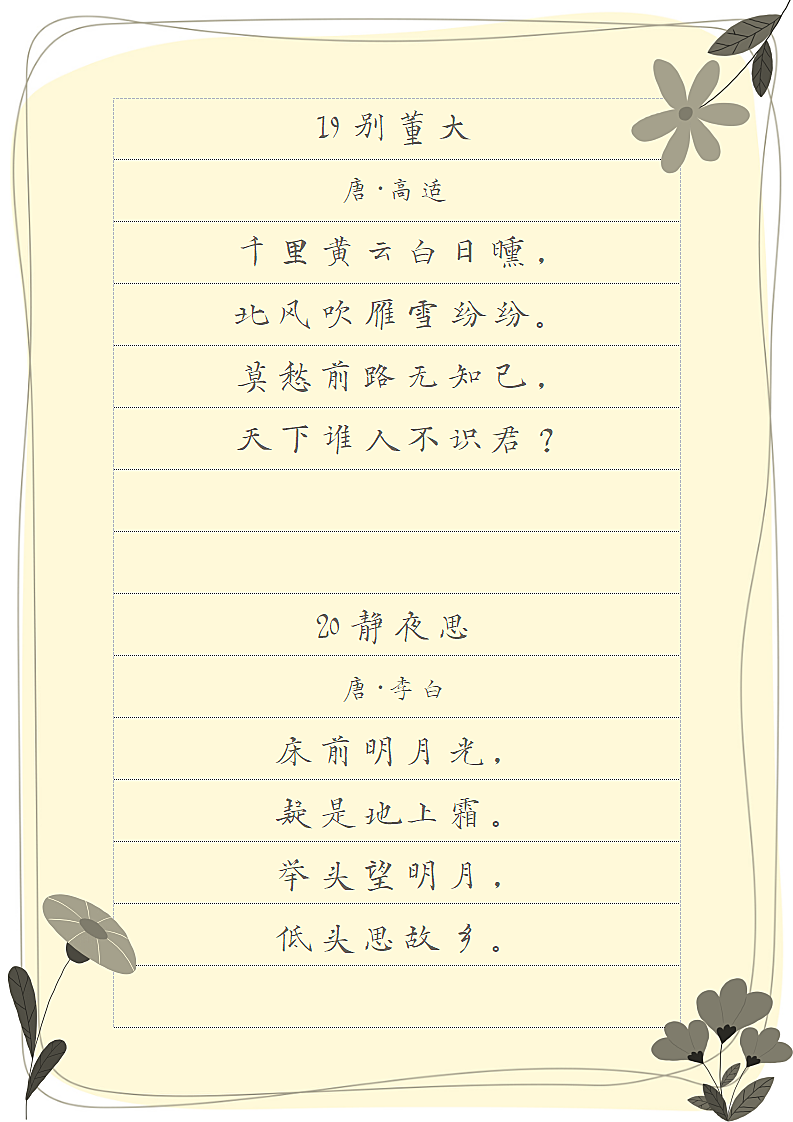 19 别董大
唐·高适
千里黄云白日曛，
北风吹雁雪纷纷。
莫愁前路无知己，
天下谁人不识君？
20 静夜思
唐·李白
床前明月光，
疑是地上霜。
举头望明月，
低头思故乡。